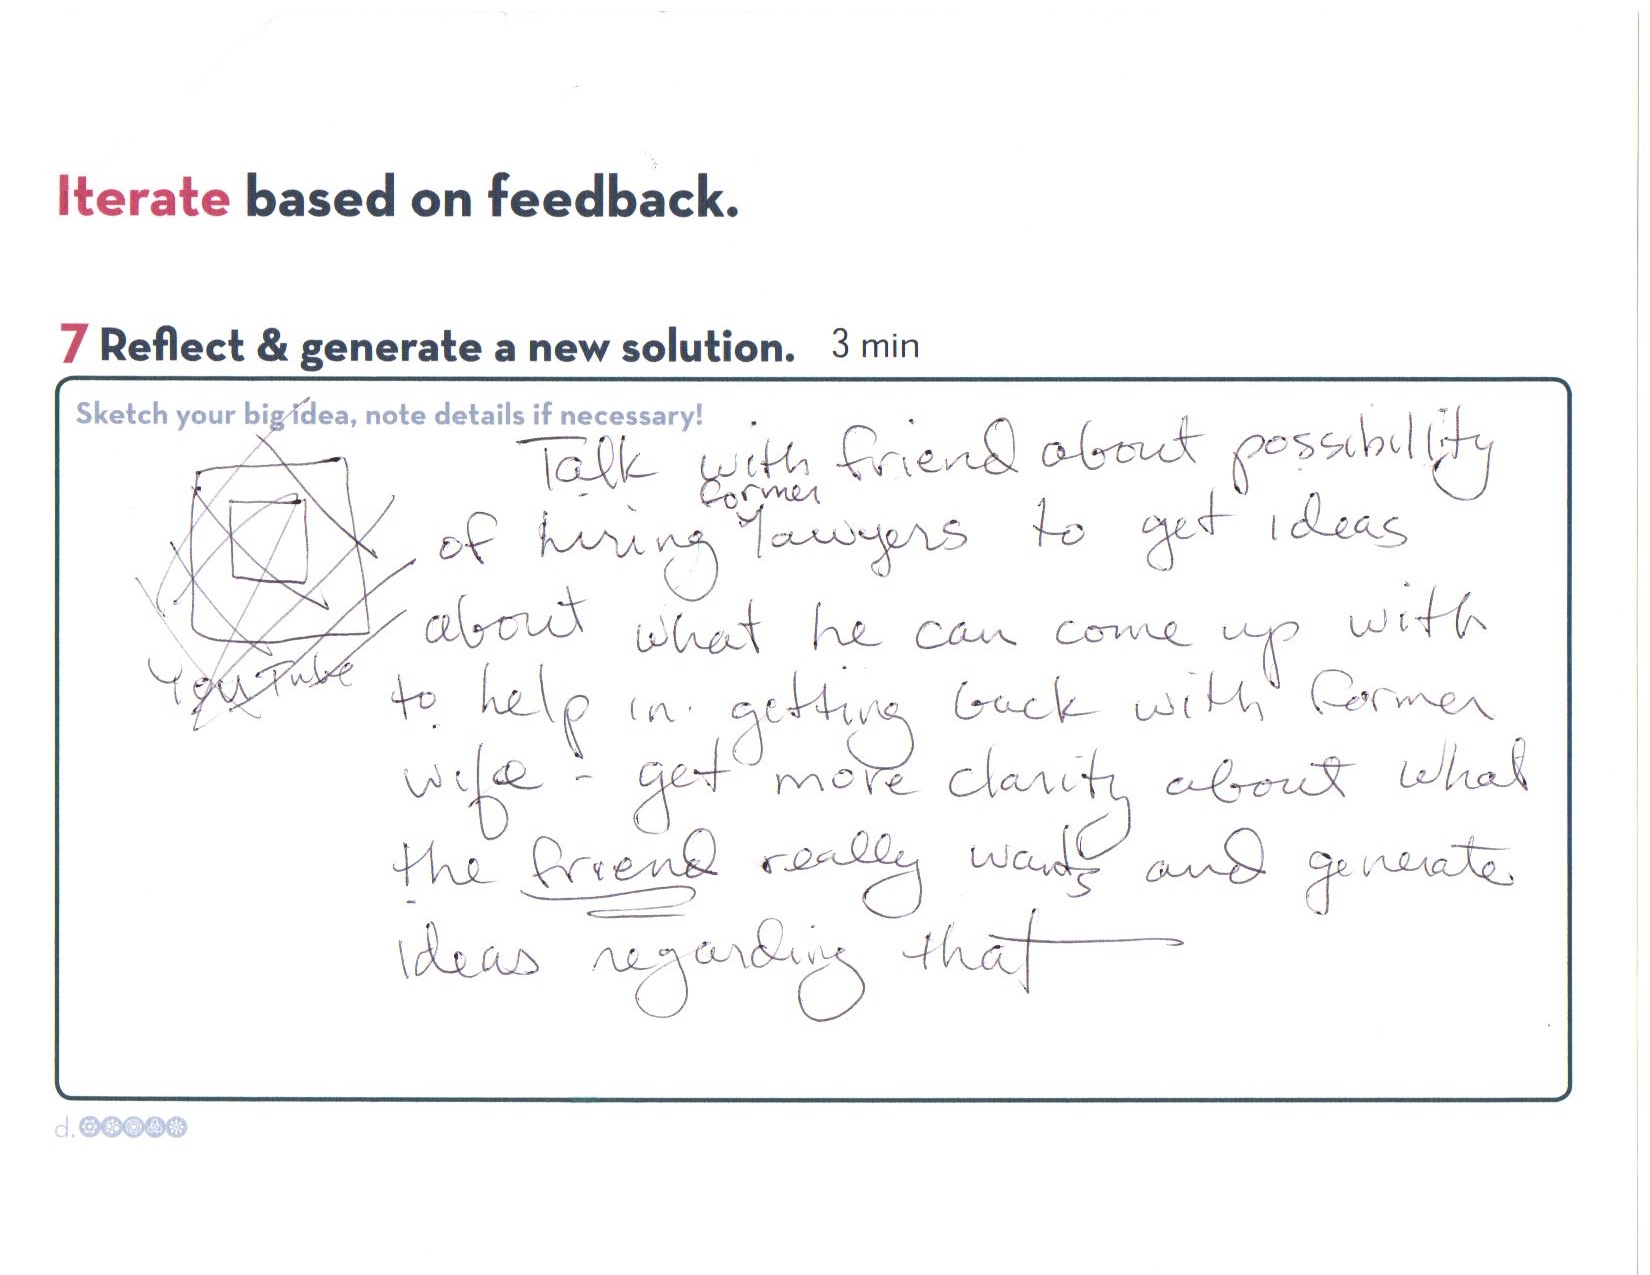 Iterate based on feedback.
7 Reflect & generate a new solution. 3 min
Sketch your big idea, note details if necessary!
Talk with friend about possibility
former
of hiring lawyers to get ideas
about what he can come up with
YouTube
to help in getting back with former
wife - get more clarity about what
the friend really wants and generate
ideas regarding that
d.